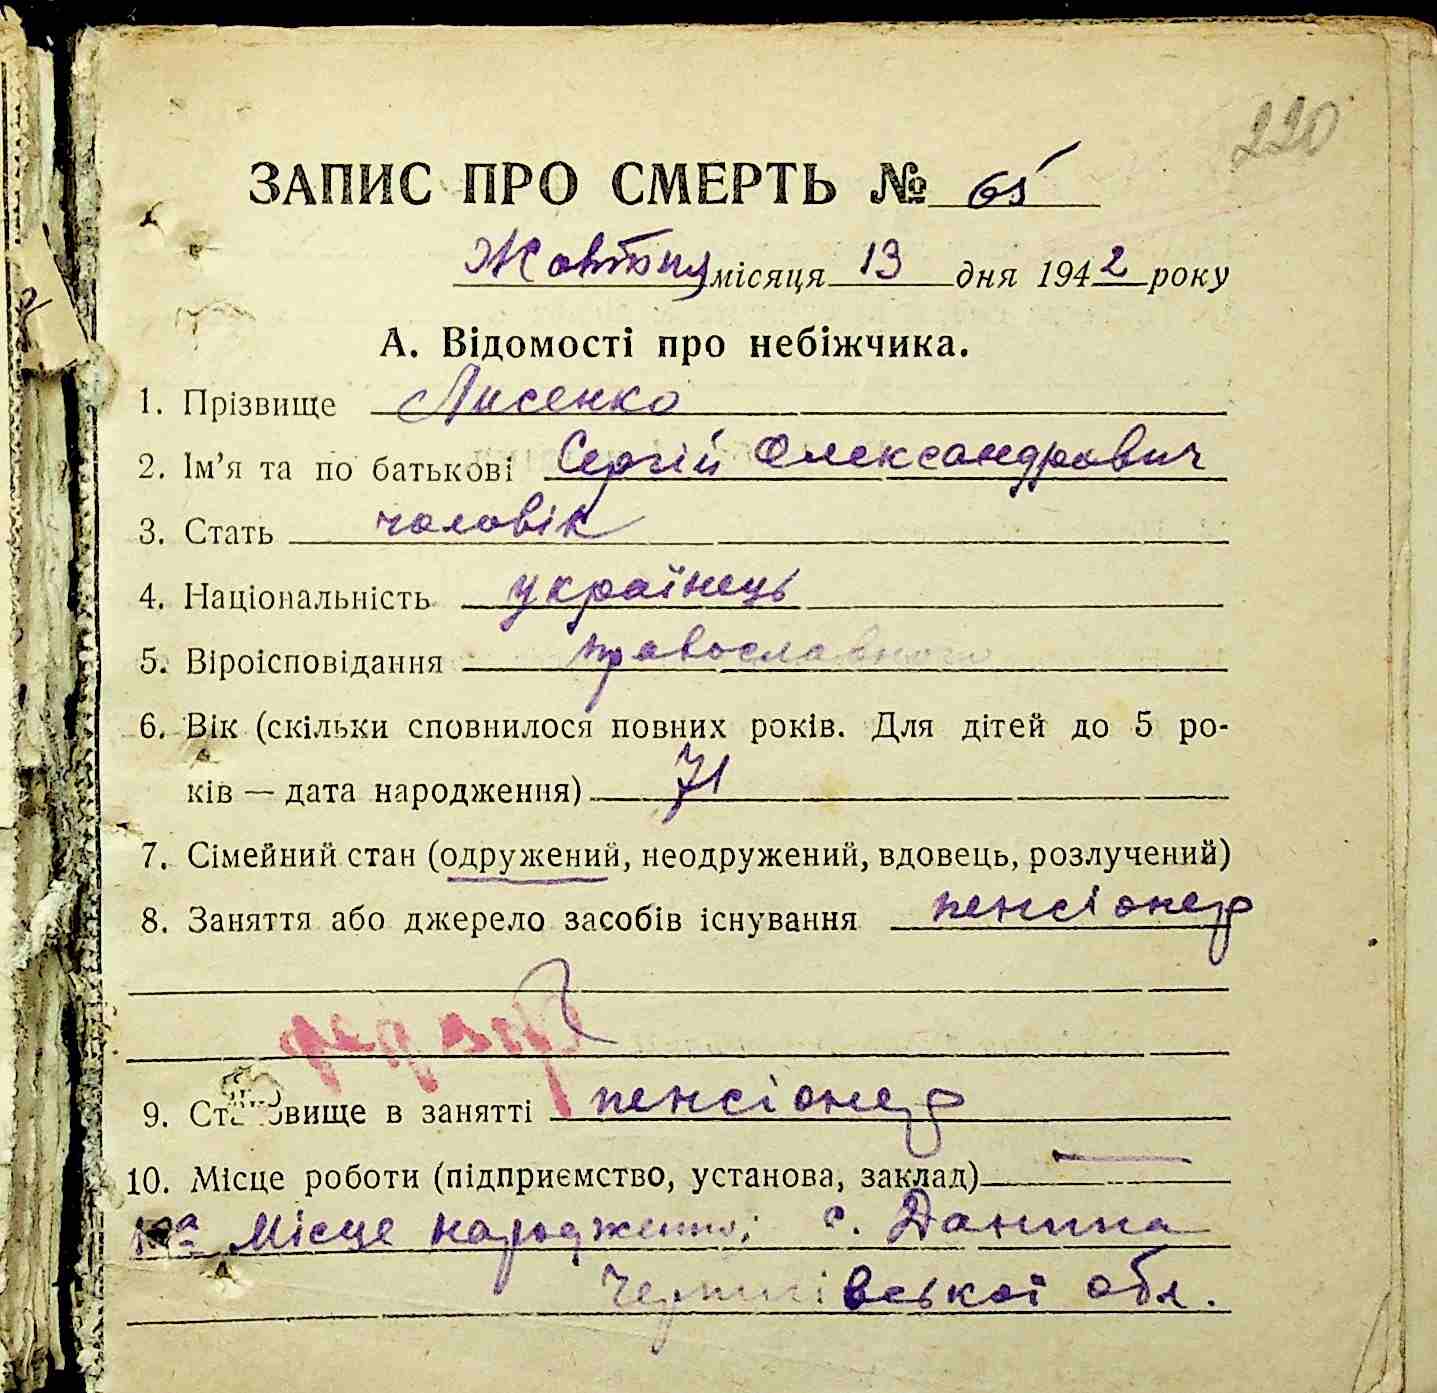 220
ЗАПИС ПРО СМЕРТЬ № 65
Жовтня місяця 13 дня 1942 року
А. Відомості про небіжчика.
1. Прізвище Лисенко
2. Ім'я та по батькові Сергій Олександрович
3. Стать чоловік
4. Національність українець
5. Віроісповідання православного
6. Вік (скільки сповнилося повних років. Для дітей до 5 ро-
ків — дата народження) 71
7. Сімейний стан (одружений, неодружений, вдовець, розлучений)
8. Заняття або джерело засобів існування пенсіонер
9. Становище в занятті пенсіонер
10. Місце роботи (підприємство, установа, заклад) —
Місце народження: с. Данина
Чернігівської обл.